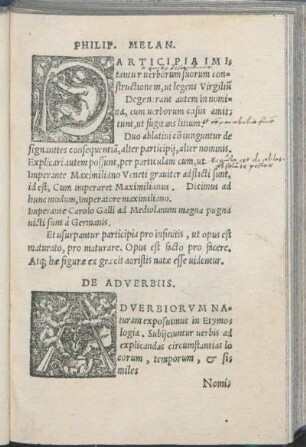 PHILIP. MELAN.
PARTICIPIA IMI,
tantur uerborum suorum con-
structionem, ut legens Virgiliũ
Degenerant autem in nomi-
na, cum uerborum casus amit,
tunt, ut fugitans litium
Duo ablatiui cõiunguntur de
signantes consequentiã, alter participij, alter nominis.
Explicari autem possunt, per particulam cum, ut
Imperante Maximiliano Veneti grauiter adflicti sunt,
id est, Cum imperaret Maximilianus. Dicimus ad
hunc modum, imperatore maximiliano.
Imperante Carolo Galli ad Mediolanum magna pugna
uicti sunt à Germanis.
Et usurpantur participia pro infinitis, ut opus est
maturato, pro maturare. Opus est facto pro facere.
Atq; hæ figuræ ex græcis aoristis natæ esse uidentur.
DE ADVERBIIS.
ADVERBIORVM NA-
turam exposuimus in Etymo,
logia. Subijciuntur uerbis ad
explicandas circumstantias lo
corum, temporum, & si,
miles
Nomi,